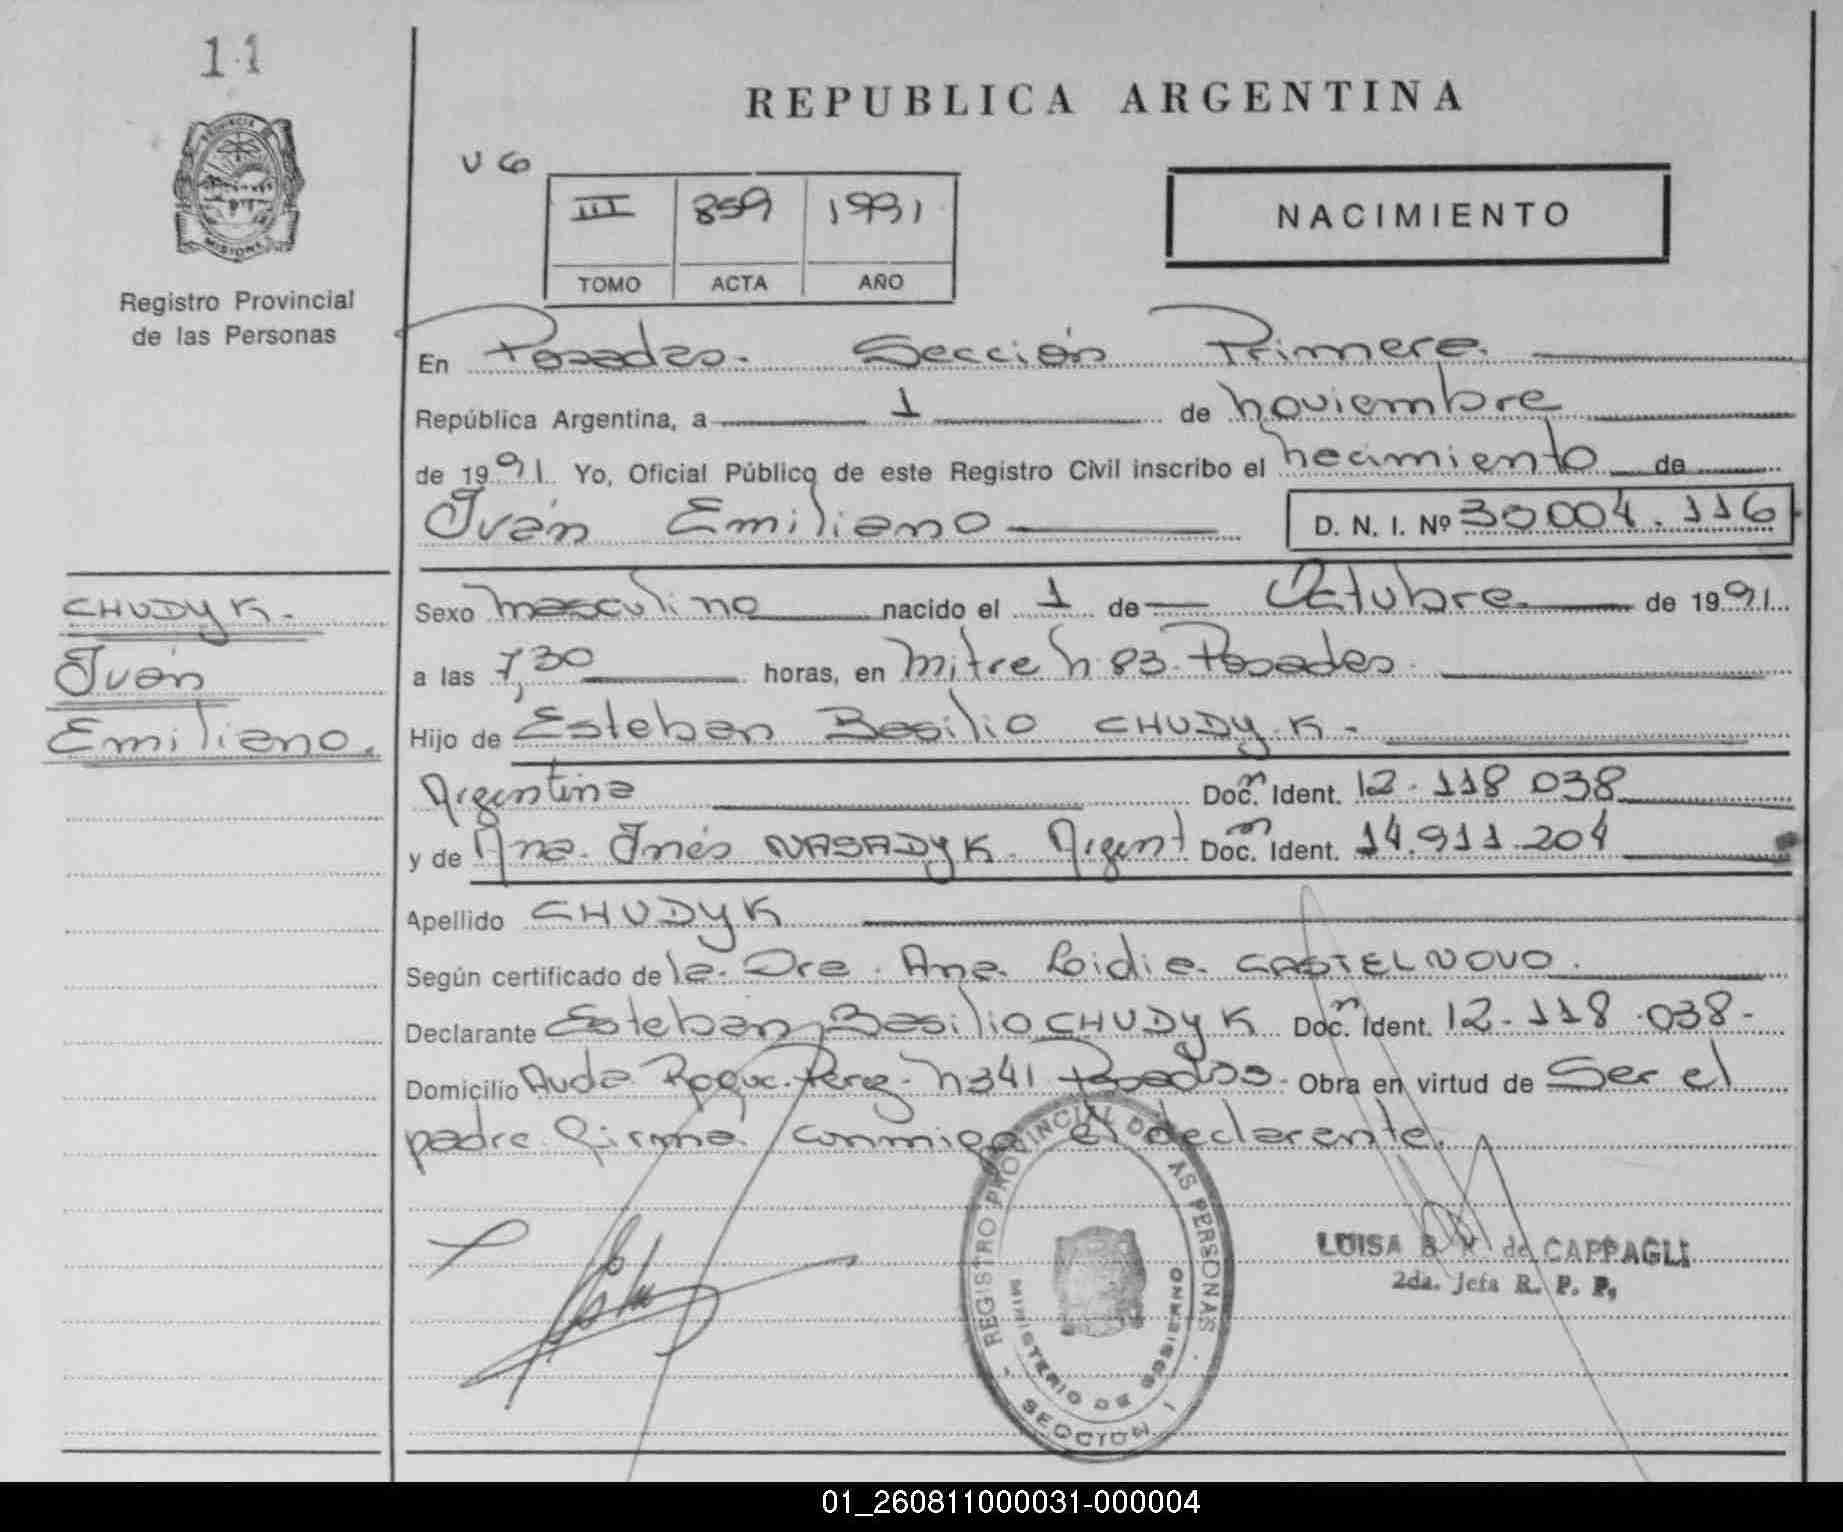 11
PROVINCIA DE
MISIONES
Registro Provincial
de las Personas
REPUBLICA ARGENTINA
V G
III 859 1991
TOMO ACTA AÑO
NACIMIENTO
En Posadas. Sección Primera.
República Argentina, a 1 de noviembre
de 1991. Yo, Oficial Público de este Registro Civil inscribo el nacimiento de
Iván Emiliano D. N. I. Nº 30 004.116
CHUDYK.
Iván
Emiliano.
Sexo masculino nacido el 1 de Octubre de 1991.
a las 7,30 horas, en Mitre n 83. Posadas.
Hijo de Esteban Basilio CHUDYK.
Argentina Doc. n Ident. 12.118 038
y de Ana Inés NASADYK. Argent Doc. n Ident. 14.911.204
Apellido CHUDYK
Según certificado de la Dra. Ana Lidia CASTELNOVO.
Declarante Esteban Basilio CHUDYK Doc. n Ident. 12.118.038-
Domicilio Avda Roque Perez n 341 Posadas. Obra en virtud de Ser el
padre firma conmigo el declarante.
REGISTRO PROVINCIAL DE LAS PERSONAS
MINISTERIO DE GOBIERNO
SECCION 1
LUISA B. de CAPPAGLI
2da. Jefa R. P. P.
01_260811000031-000004